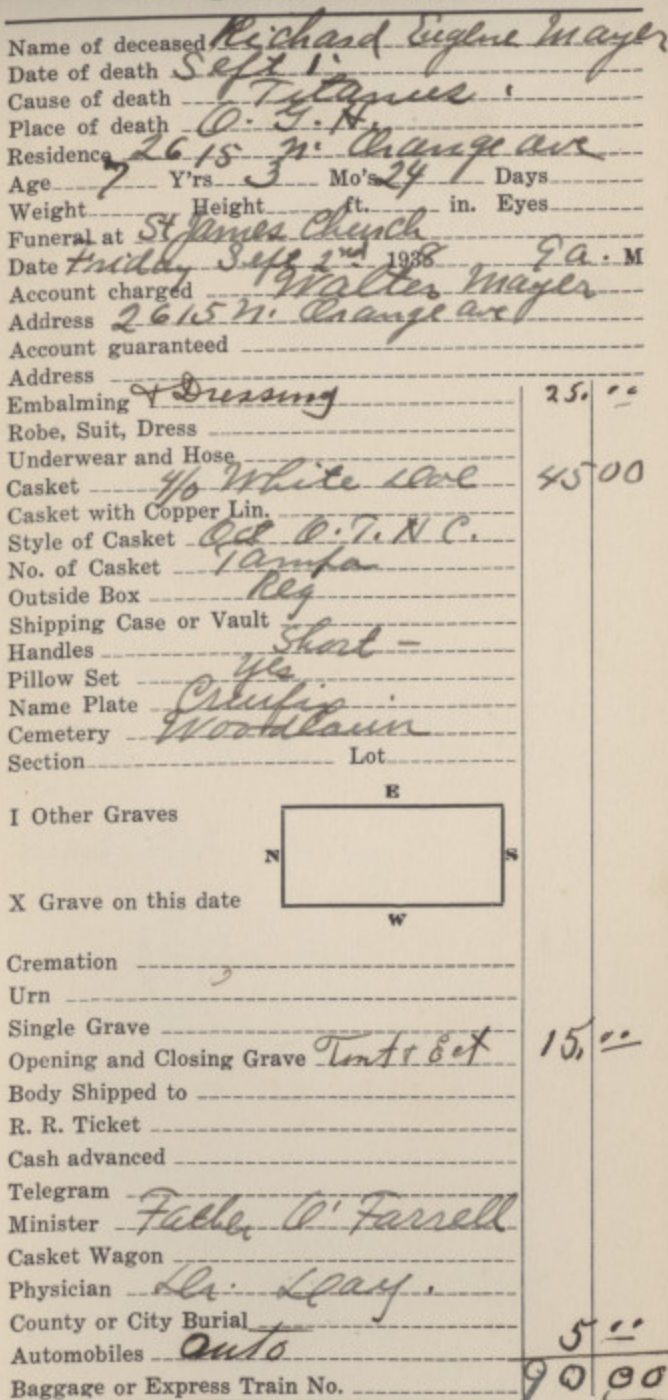 Name of deceased Richard Eugene Mayer
Date of death Sept 1.
Cause of death Titanus.
Place of death O. G. H.
Residence 2615 N. Orange ave
Age 7 Y'rs 3 Mo's 24 Days
Weight Height ft. in. Eyes
Funeral at St James Church
Date Friday Sept 2nd 1938 9 a. M
Account charged Walter Mayer
Address 2615 N. Orange ave
Account guaranteed
Address
Embalming & Dressing 25. 00
Robe, Suit, Dress
Underwear and Hose
Casket 4/0 White 45 00
Casket with Copper Lin.
Style of Casket Oct O. T. N C.
No. of Casket Tampa
Outside Box Reg
Shipping Case or Vault
Handles Short -
Pillow Set yes
Name Plate Crucifix
Cemetery Woodlawn
Section Lot
E
I Other Graves
N S
X Grave on this date
W
Cremation
Urn
Single Grave
Opening and Closing Grave Tent & Ect 15. 00
Body Shipped to
R. R. Ticket
Cash advanced
Telegram
Minister Father O'Farrell
Casket Wagon
Physician Dr. Day.
County or City Burial
Automobiles auto 5 00
Baggage or Express Train No. 90 00